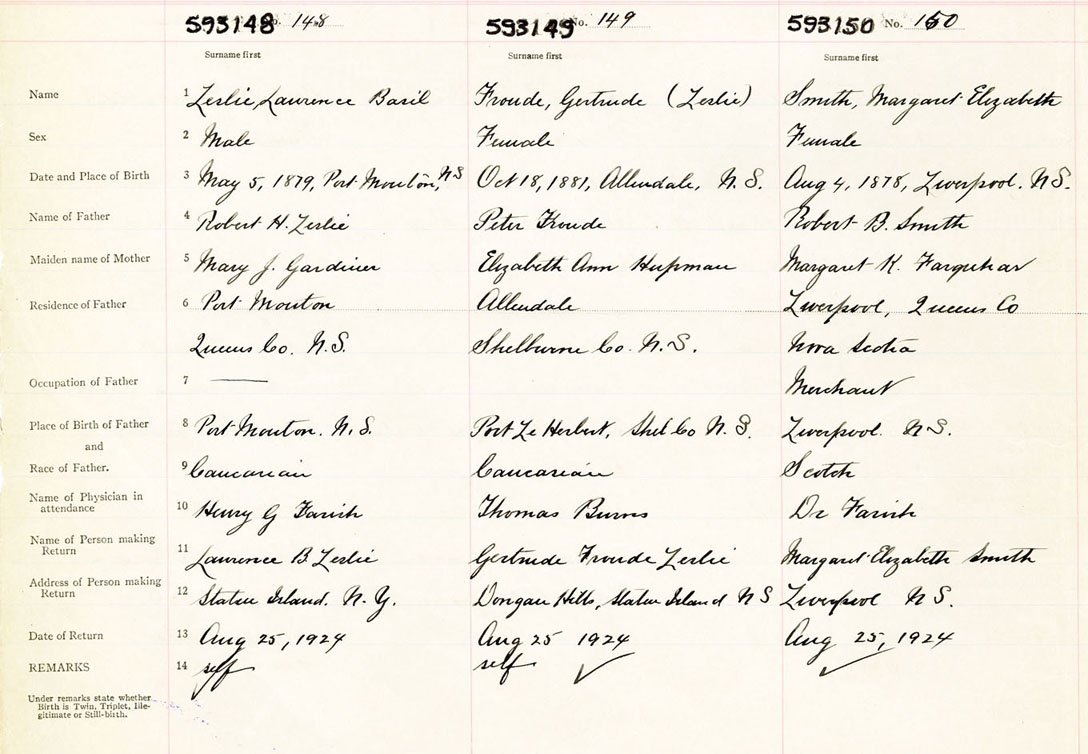 593148 No. 148
593149 No. 149
593150 No. 150
Surname first
Surname first
Surname first
Name 1 Leslie, Lawrence Basil
Froude, Gertrude (Leslie)
Smith, Margaret Elizabeth
Sex 2 Male
Female
Female
Date and Place of Birth 3 May 5, 1879, Port Mouton, NS
Oct 18, 1881, Allendale, N.S.
Aug 4, 1878, Liverpool. N.S.
Name of Father 4 Robert H. Leslie
Peter Froude
Robert B. Smith
Maiden name of Mother 5 Mary J. Gardiner
Elizabeth Ann Hupman
Margaret K. Farquhar
Residence of Father 6 Port Mouton
Allendale
Liverpool, Queens Co
Queens Co. N.S.
Shelburne Co. N.S.
Nova Scotia
Occupation of Father 7 —
Merchant
Place of Birth of Father 8 Port Mouton. N.S.
Port Le Herbert, Shel Co N.S.
Liverpool. N.S.
and
Race of Father. 9 Caucasian
Caucasian
Scotch
Name of Physician in
attendance 10 Henry G Farish
Thomas Burns
Dr Farish
Name of Person making
Return 11 Lawrence B Leslie
Gertrude Froude Leslie
Margaret Elizabeth Smith
Address of Person making
Return 12 Staten Island. N.Y.
Dongan Hills, Staten Island N S
Liverpool N.S.
Date of Return 13 Aug 25, 1924
Aug 25 1924
Aug 25, 1924
REMARKS 14 self
self ✓
✓
Under remarks state whether
Birth is Twin, Triplet, Ille-
gitimate or Still-birth.